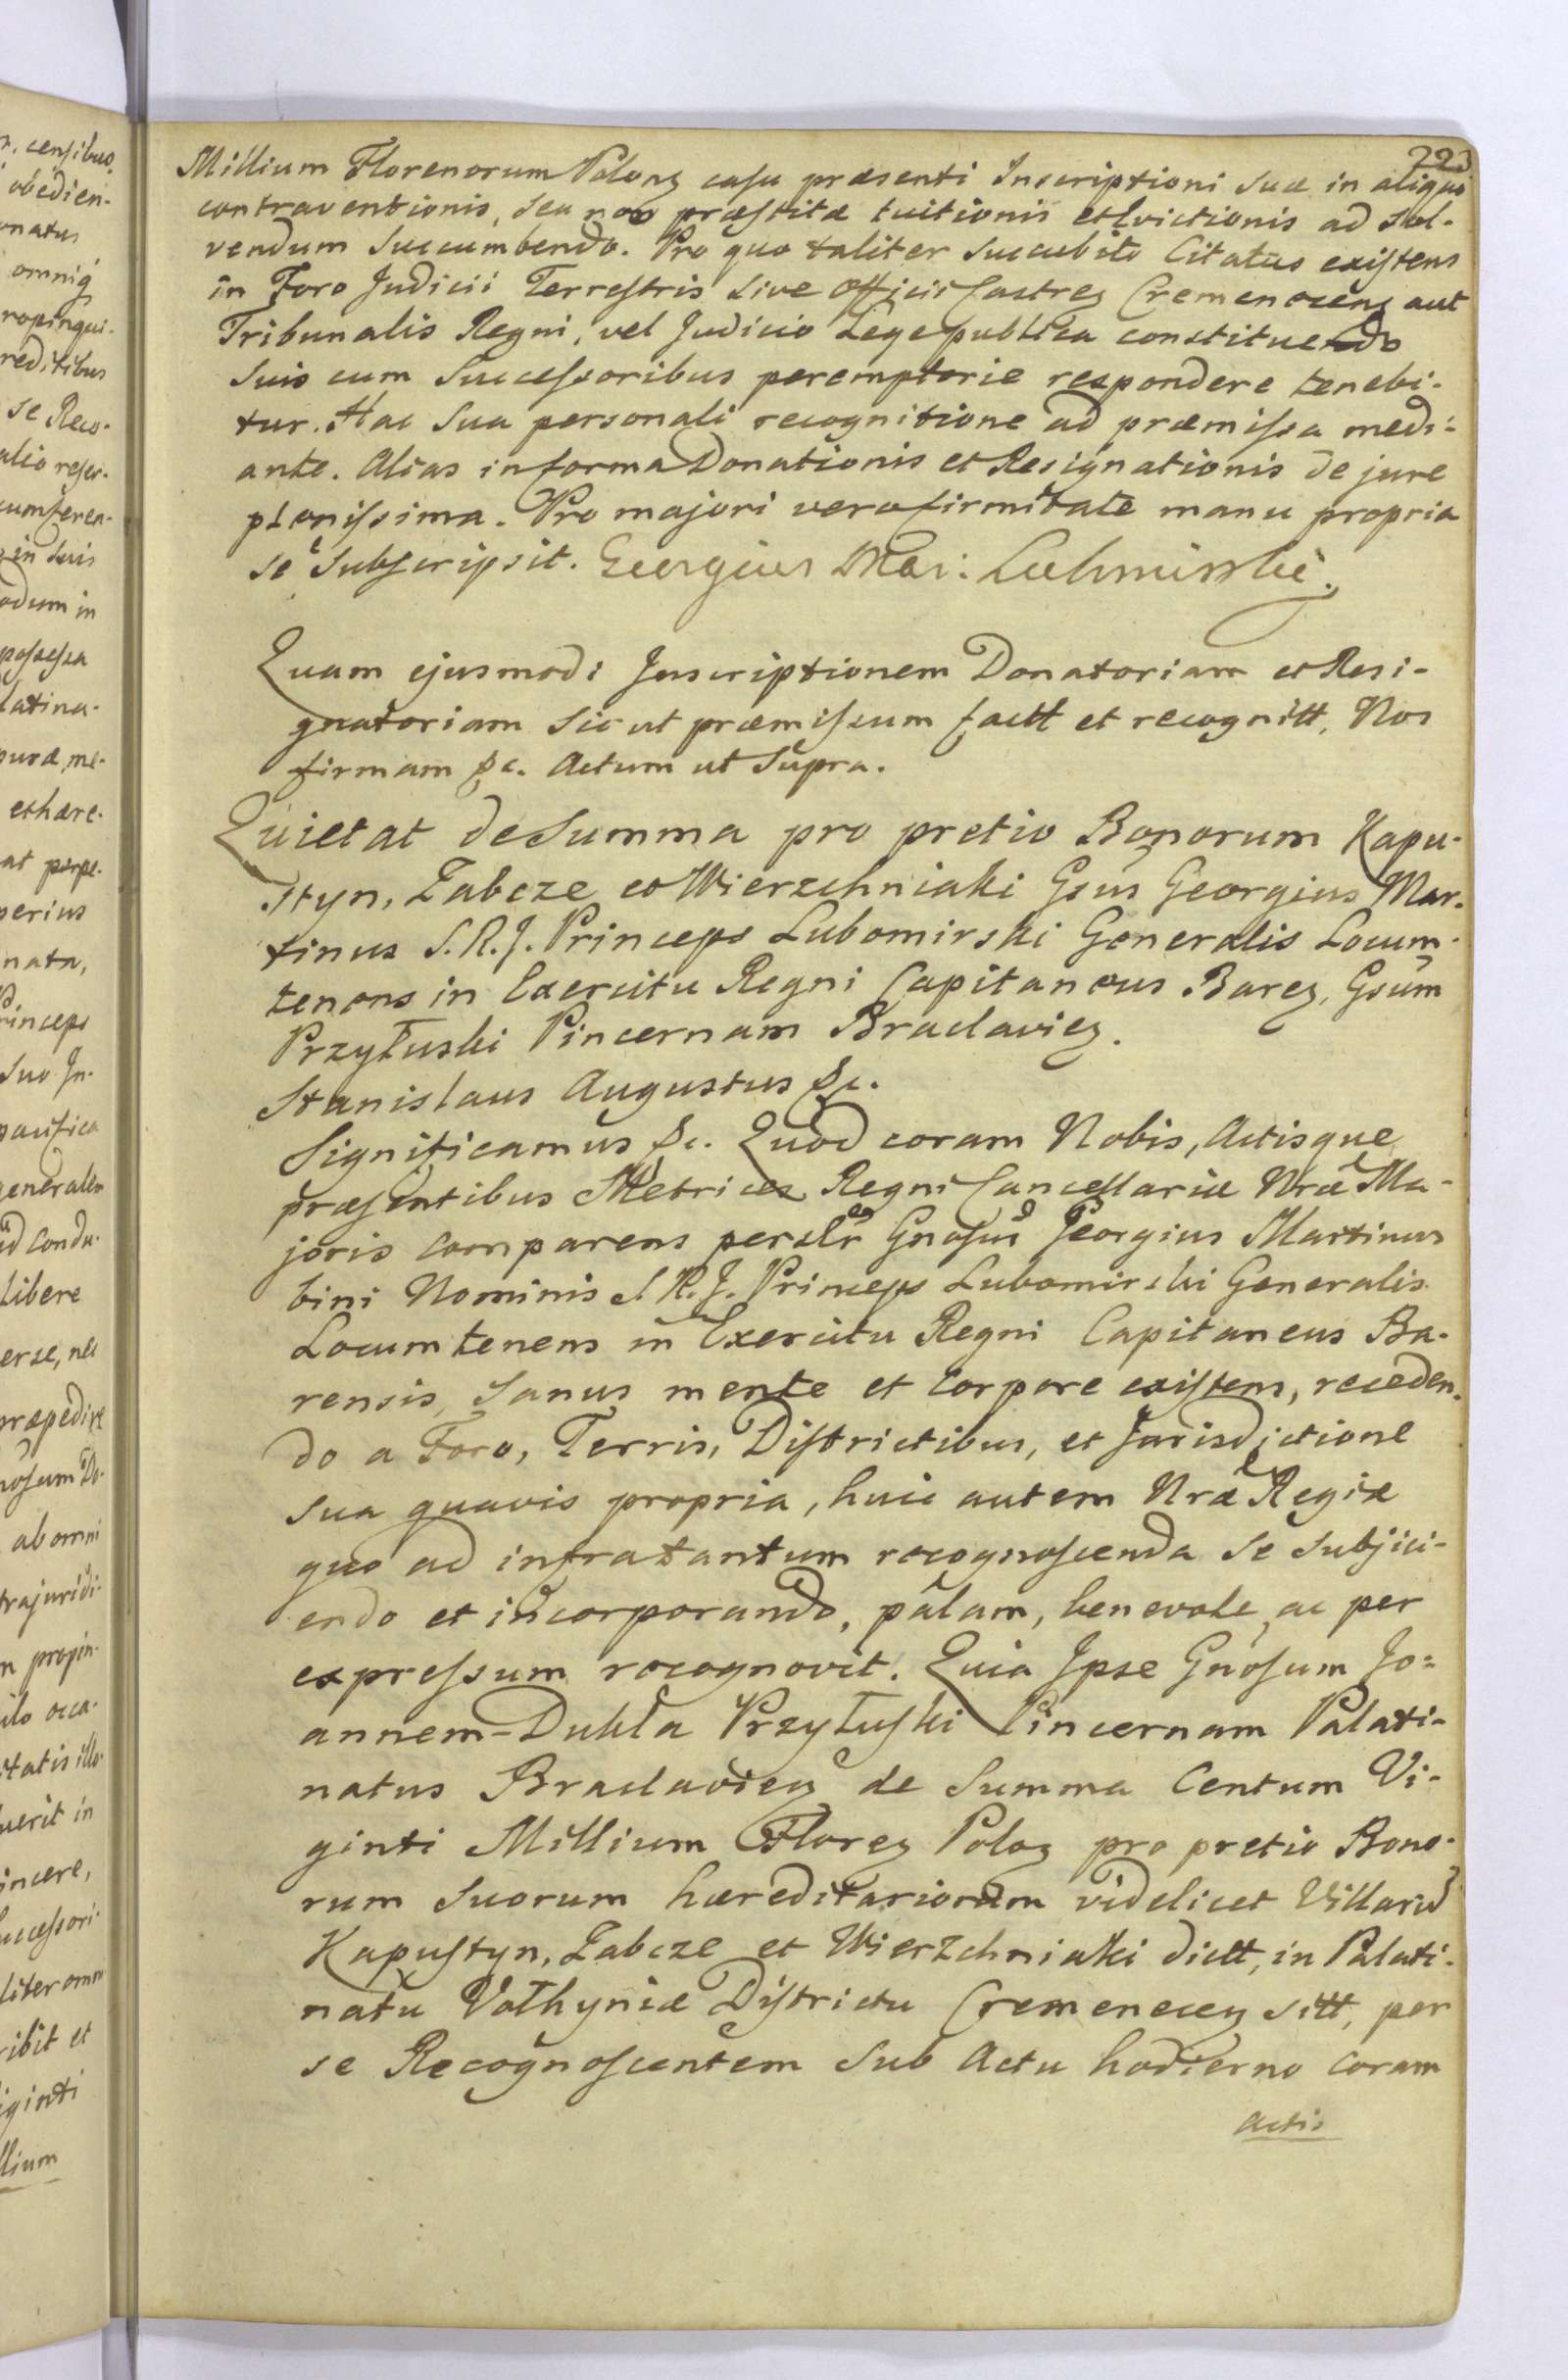 223
Millium Florenorum Polonz casu præsenti Inscriptioni suæ in aliquo
contraventionis, seu non præstitæ tuitionis et Evictionis ad sol-
vendum succumbendo. Pro quo taliter succubito Citatus existens
in Foro Judicii Terrestris sive Officii Castrez Cremenecenz aut
Tribunalis Regni, vel Judicio Lege publica constituendo
suis cum Successoribus peremptorie respondere tenebi-
tur. Hac sua personali recognitione ad præmissa medi-
ante. Alias in forma Donationis et Resignationis de jure
plenissima. Pro majori vero firmitate manu propria
se subscripsit. Georgius Mar: Lubomirski.
Quam ejusmodi Inscriptionem Donatoriam et Resi-
gnatoriam sic ut præmissum factt et recognitt, Nos
firmam &c. Actum ut Supra.
Quietat de Summa pro pretio Bonorum Kapu-
styn, Zabcze et Wierzchniaki Gsūs Georgius Mar-
tinus S. R. J. Princeps Lubomirski Generalis Locum-
tenens in Exercitu Regni Capitaneus Barez, Gsūm
Przyłuski Pincernam Braclaviez.
Stanislaus Augustus &c.
Significamus &c. Quod coram Nobis, Actisque
præsentibus Metrices Regni Cancellariæ Nræ Ma-
joris comparens perslr Gnosus Georgius Martinus
bini Nominis S. R. J. Princeps Lubomirski Generalis
Locumtenens in Exercitu Regni Capitaneus Ba-
rensis, sanus mente et corpore existens, receden-
do a Foro, Terris, Districtibus, et Jurisdictione
sua quavis propria, huic autem Nræ Regiæ
quo ad infra tantum recognoscenda se subjici-
endo et incorporando, palam, benevole, ac per
expressum recognovit. Quia Ipse Gnosum Jo-
annem-Dukla Przyłuski Pincernam Palati-
natus Braclaviez de Summa Centum Vi-
ginti Millium Florez Poloz pro pretio Bono-
rum suorum hæreditariorum videlicet Villarū
Kapustyn, Zabcze et Wierzchniaki dictt, in Palati-
natu Volhyniæ Districtu Cremenecez sitt, per
se Recognoscentem sub Actu hodierno coram
Actis